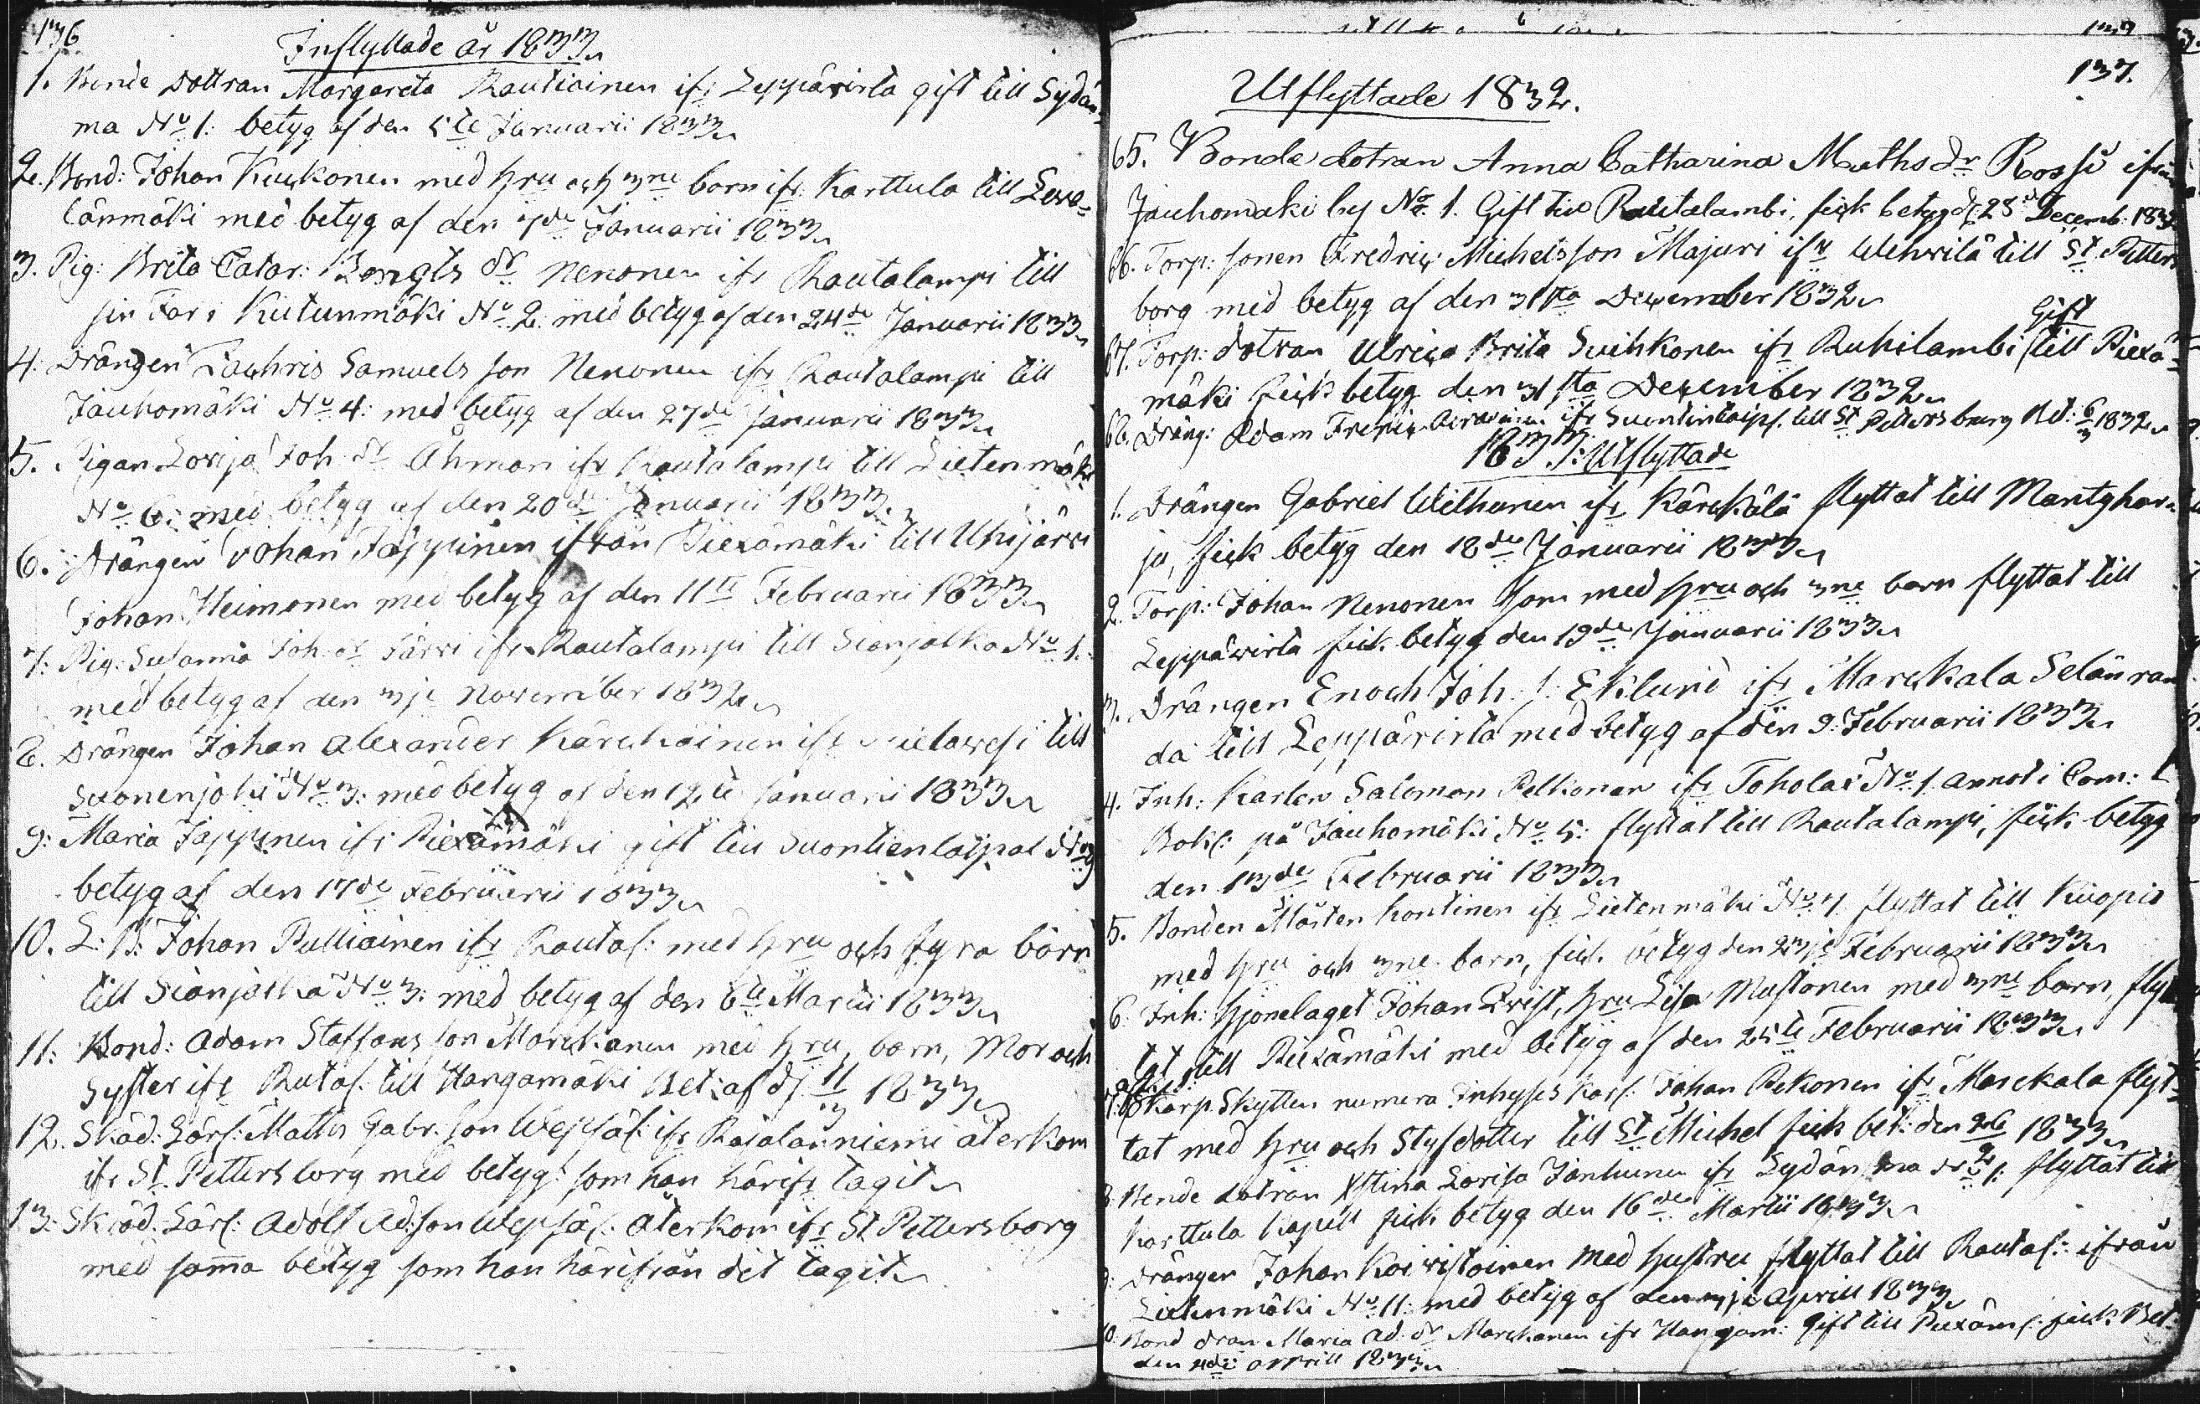 136
Inflyttade år 1833
1. Bonde dottran Margareta Rautiainen ifr Leppävirta gift till Sydän=
ma No 1: betyg af den 5te Januarii 1833
2. Bond: Johan Kuckonen med hru och 3ne barn ifr Karttula till
länmäki med betyg af den 7de Januarii 1833
3. Pig: Brita Catar: Bengts dr Nenonen ifr Rautalampi till
sin Far i Kutunmäki No 2 med betyg af den 24de Januarii 1833
4: Drängen Zachris Samuels son Nenonen ifr Rautalampi till
Jauhomäki No 4: med betyg af den 27de januarii 1833
5. Pigan Lovisa Joh: dr Åhman ifr Rautalampi till Lietenmäki
No 6: med betyg af den 20de Januarii 1833
6. Drängen Johan Jäppinen ifrån Piexämäki till Uhijärvi
Johan Heimonen med betyg af den 11te Februarii 1833
7: Pig: Susanna Joh: dr Järvi ifr Rautalampi till Sianjalka No 1.
med betyg af den 3je November 1832
8. Drängen Johan Alexander Karckäinen ifr till
Suonenjoki No 3: med betyg af den 12te Januarii 1833
9: Maria Jäppinen ifr Piexämäki gift till Suontientaipal No 9
betyg af den 17de Februarii 1833
10. L: B: Johan Pulliainen ifr Rautal: med hru och fyra barn
till Sianjalka No 3: med betyg af den 6te Martii 1833
11: Bond: Adam Staffans son Marckanen med hru, barn, Mor och
Syster ifr Rutal: till Hangamäki Bet: af d: 11/3 1833
12. Skäd: Lärl: Matts Gabr. son Wepsäl: ifr Rajalanniemi återkom
ifr St Pettersborg med betyg som han härifr tagit
13: Skräd: Lärl: Adolf Ad: son Wepsäl: återkom ifr St Pettersborg
med samma betyg som han härifrån dit tagit
137.
Utflyttade 1832.
65. Bonde dotran Anna Catharina Mathsdr Rossi ifrån
Jauhomäki by No 1. Gift till Rautalambi, fick betyg d: 28 Decemb: 1832
66. Torp: sonen Fredric Michelsson Majuri ifr Wehvilä till St Petters
borg med betyg af den 31sta December 1832
Gift
67. Torp: dotran Ulrica Brita Suihkonen ifr Ruhilambi till Piexä=
mäki fick betyg den 31sta December 1832
Dräng: Adam Fredric ifr Suontintaip: till St Pettersburg Bet: 6/3 1832
1833: Utflyttade
1. Drängen Gabriel Wilhunen ifr Kärckälä flyttat till Mantyhar=
ju, fick betyg den 18de Januarii 1833
2. Torp: Johan Nenonen som med hru och 3ne barn flyttat till
Leppävirta fick betyg den 19de Januarii 1833
3. Drängen Enoch Joh: s: Eklund ifr Marckala Selänran
da till Leppävirta med betyg af den 9: Februarii 1833
4. Inh: Karlen Salomon Pelkonen ifr Toholax No 1. annot i Com:
Bok: på Jauhomäki No 5: flyttat till Rautalampi, fick betyg
den 13de Februarii 1833
5. Bonden Mårten Kontinen ifr Lietenmäki No 7 flyttat till Kuopio
med hru och 3ne barn, fick betyg den 23je Februarii 1833
6. Inh: hjonelaget Johan Qvist, hru Lisa Mustonen med 3ne barn, flyt
tat till Piexämäki med betyg af den 25te Februarii 1833
7. Skarp Skytten numera Inhyses Karl: Johan Pekonen ifr Marckala flyt=
tat med hru och Styfdotter till St Michel fick bet: den 26/2 1833
8. Bonde dotran Xstina Lovisa Janhunen ifr Sydänma No 1: flyttat till
Karttula Kapell fick betyg den 16de Martii 1833
9: Drängen Johan Koivistoinen med hustru flyttat till Rautal: ifrån
Lietenmäki No 11: med betyg af den 3je Aprill 1833
10. Bond dran Maria Ad: dr Marckanen ifr Hangam: Gift till Piexäm: fick Bet:
den aprill 1833